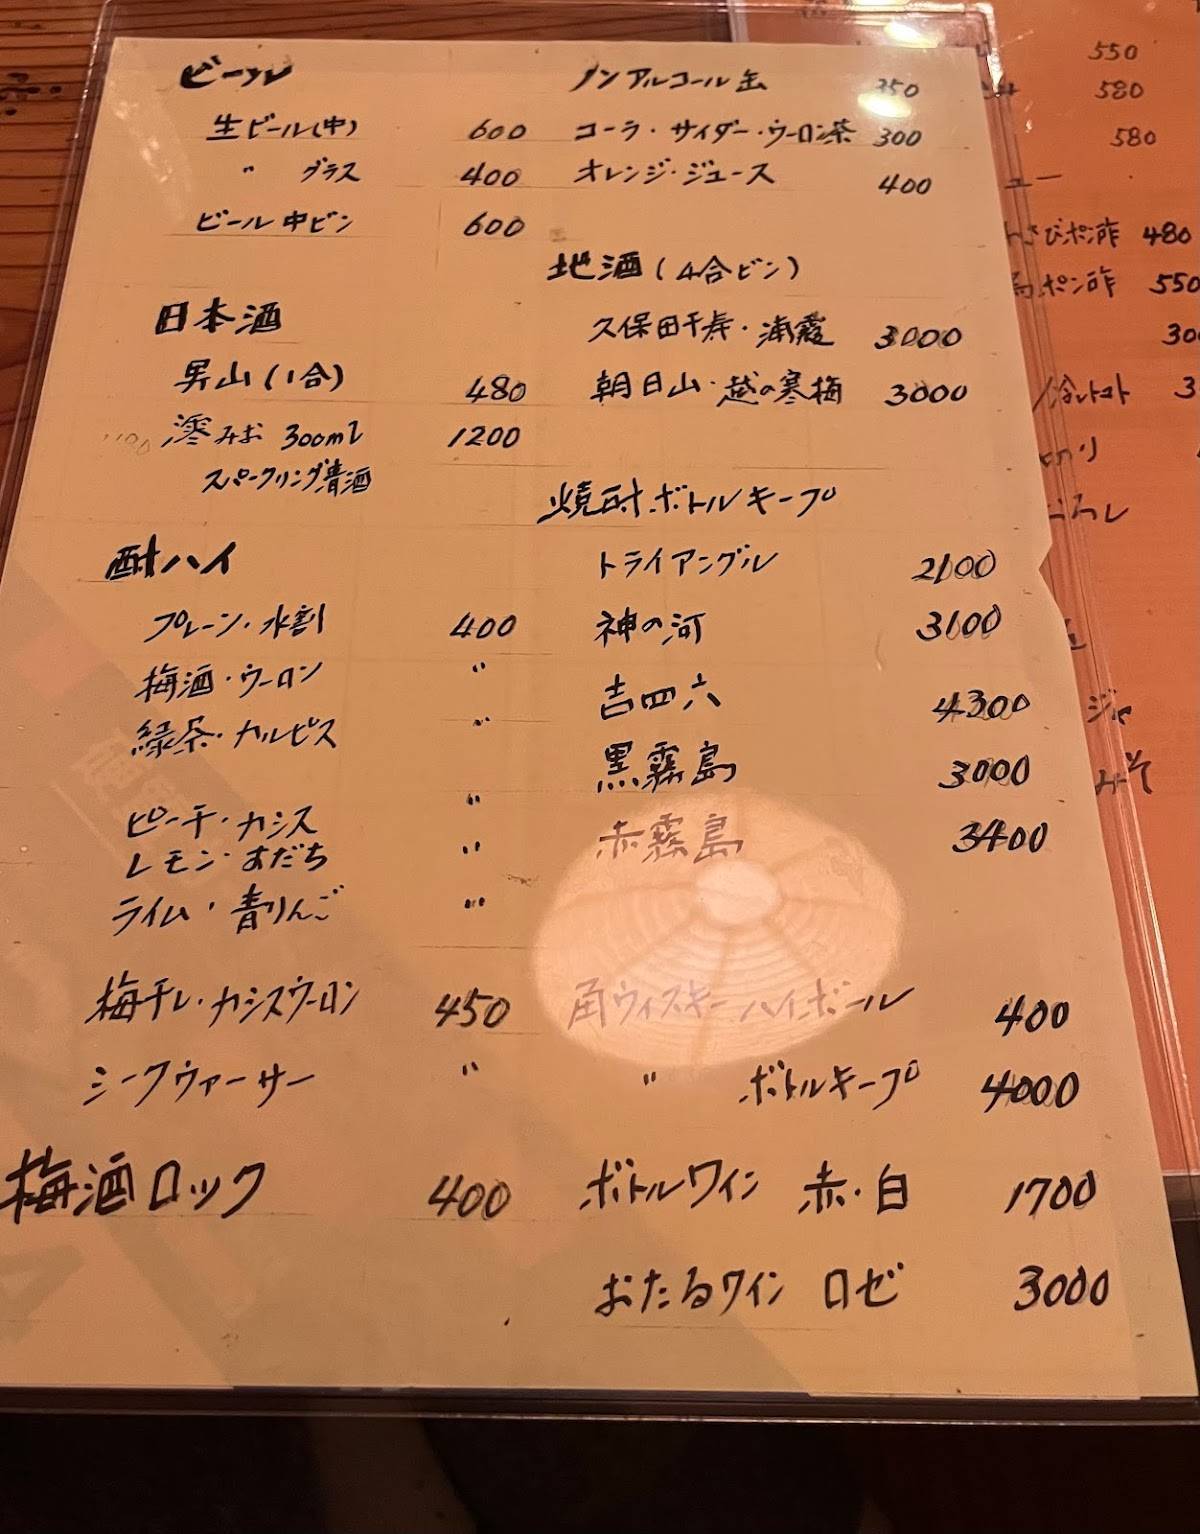 ビール
生ビール(中) 600
〃 グラス 400
ビール 中ビン 600
日本酒
男山(1合) 480
澪みお 300ml 1200
スパークリング清酒
酎ハイ
プレーン・水割 400
梅酒・ウーロン 〃
緑茶・カルピス 〃
ピーチ・カシス 〃
レモン・すだち 〃
ライム・青りんご 〃
梅干し・カシスウーロン 450
シークヮーサー 〃
梅酒ロック 400
ノンアルコール缶 350
コーラ・サイダー・ウーロン茶 300
オレンジ・ジュース 400
地酒(4合ビン)
久保田千寿・浦霞 3000
朝日山・越の寒梅 3000
焼酎ボトルキープ
トライアングル 2100
神の河 3100
吉四六 4300
黒霧島 3000
赤霧島 3400
角ウィスキーハイボール 400
〃 ボトルキープ 4000
ボトルワイン 赤・白 1700
おたるワイン ロゼ 3000
550
580
580
ュー
さびポン酢 480
ポン酢 550
300
冷しトマト 3
ろし
ジャ
みそ